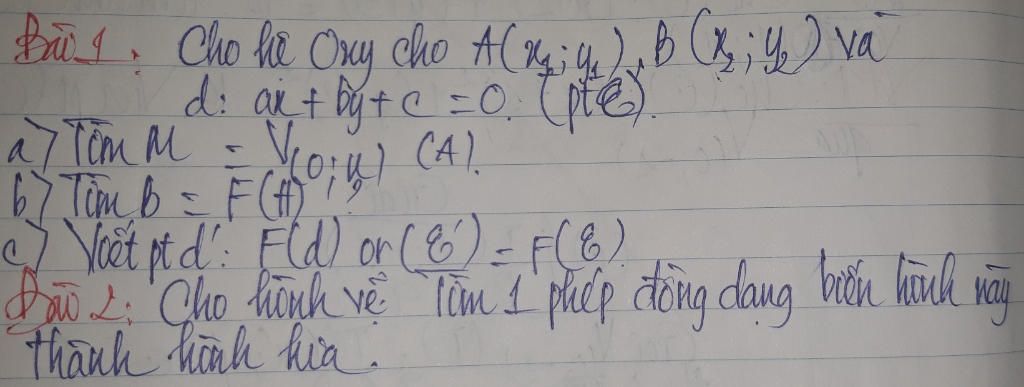 Bài 1: Cho hê Oxy cho A(x₁; y₁), B(x₂; y₂) và
d: ax + by + c = 0. (pt C)
a) Tìm M = V(O; k) (A).
b) Tìm B = F(A)
c) Viết pt d': F(d) or (C') = F(C)
Bài 2: Cho hình vẽ. Tìm 1 phép đồng dạng biến hình này
thành hình kia.